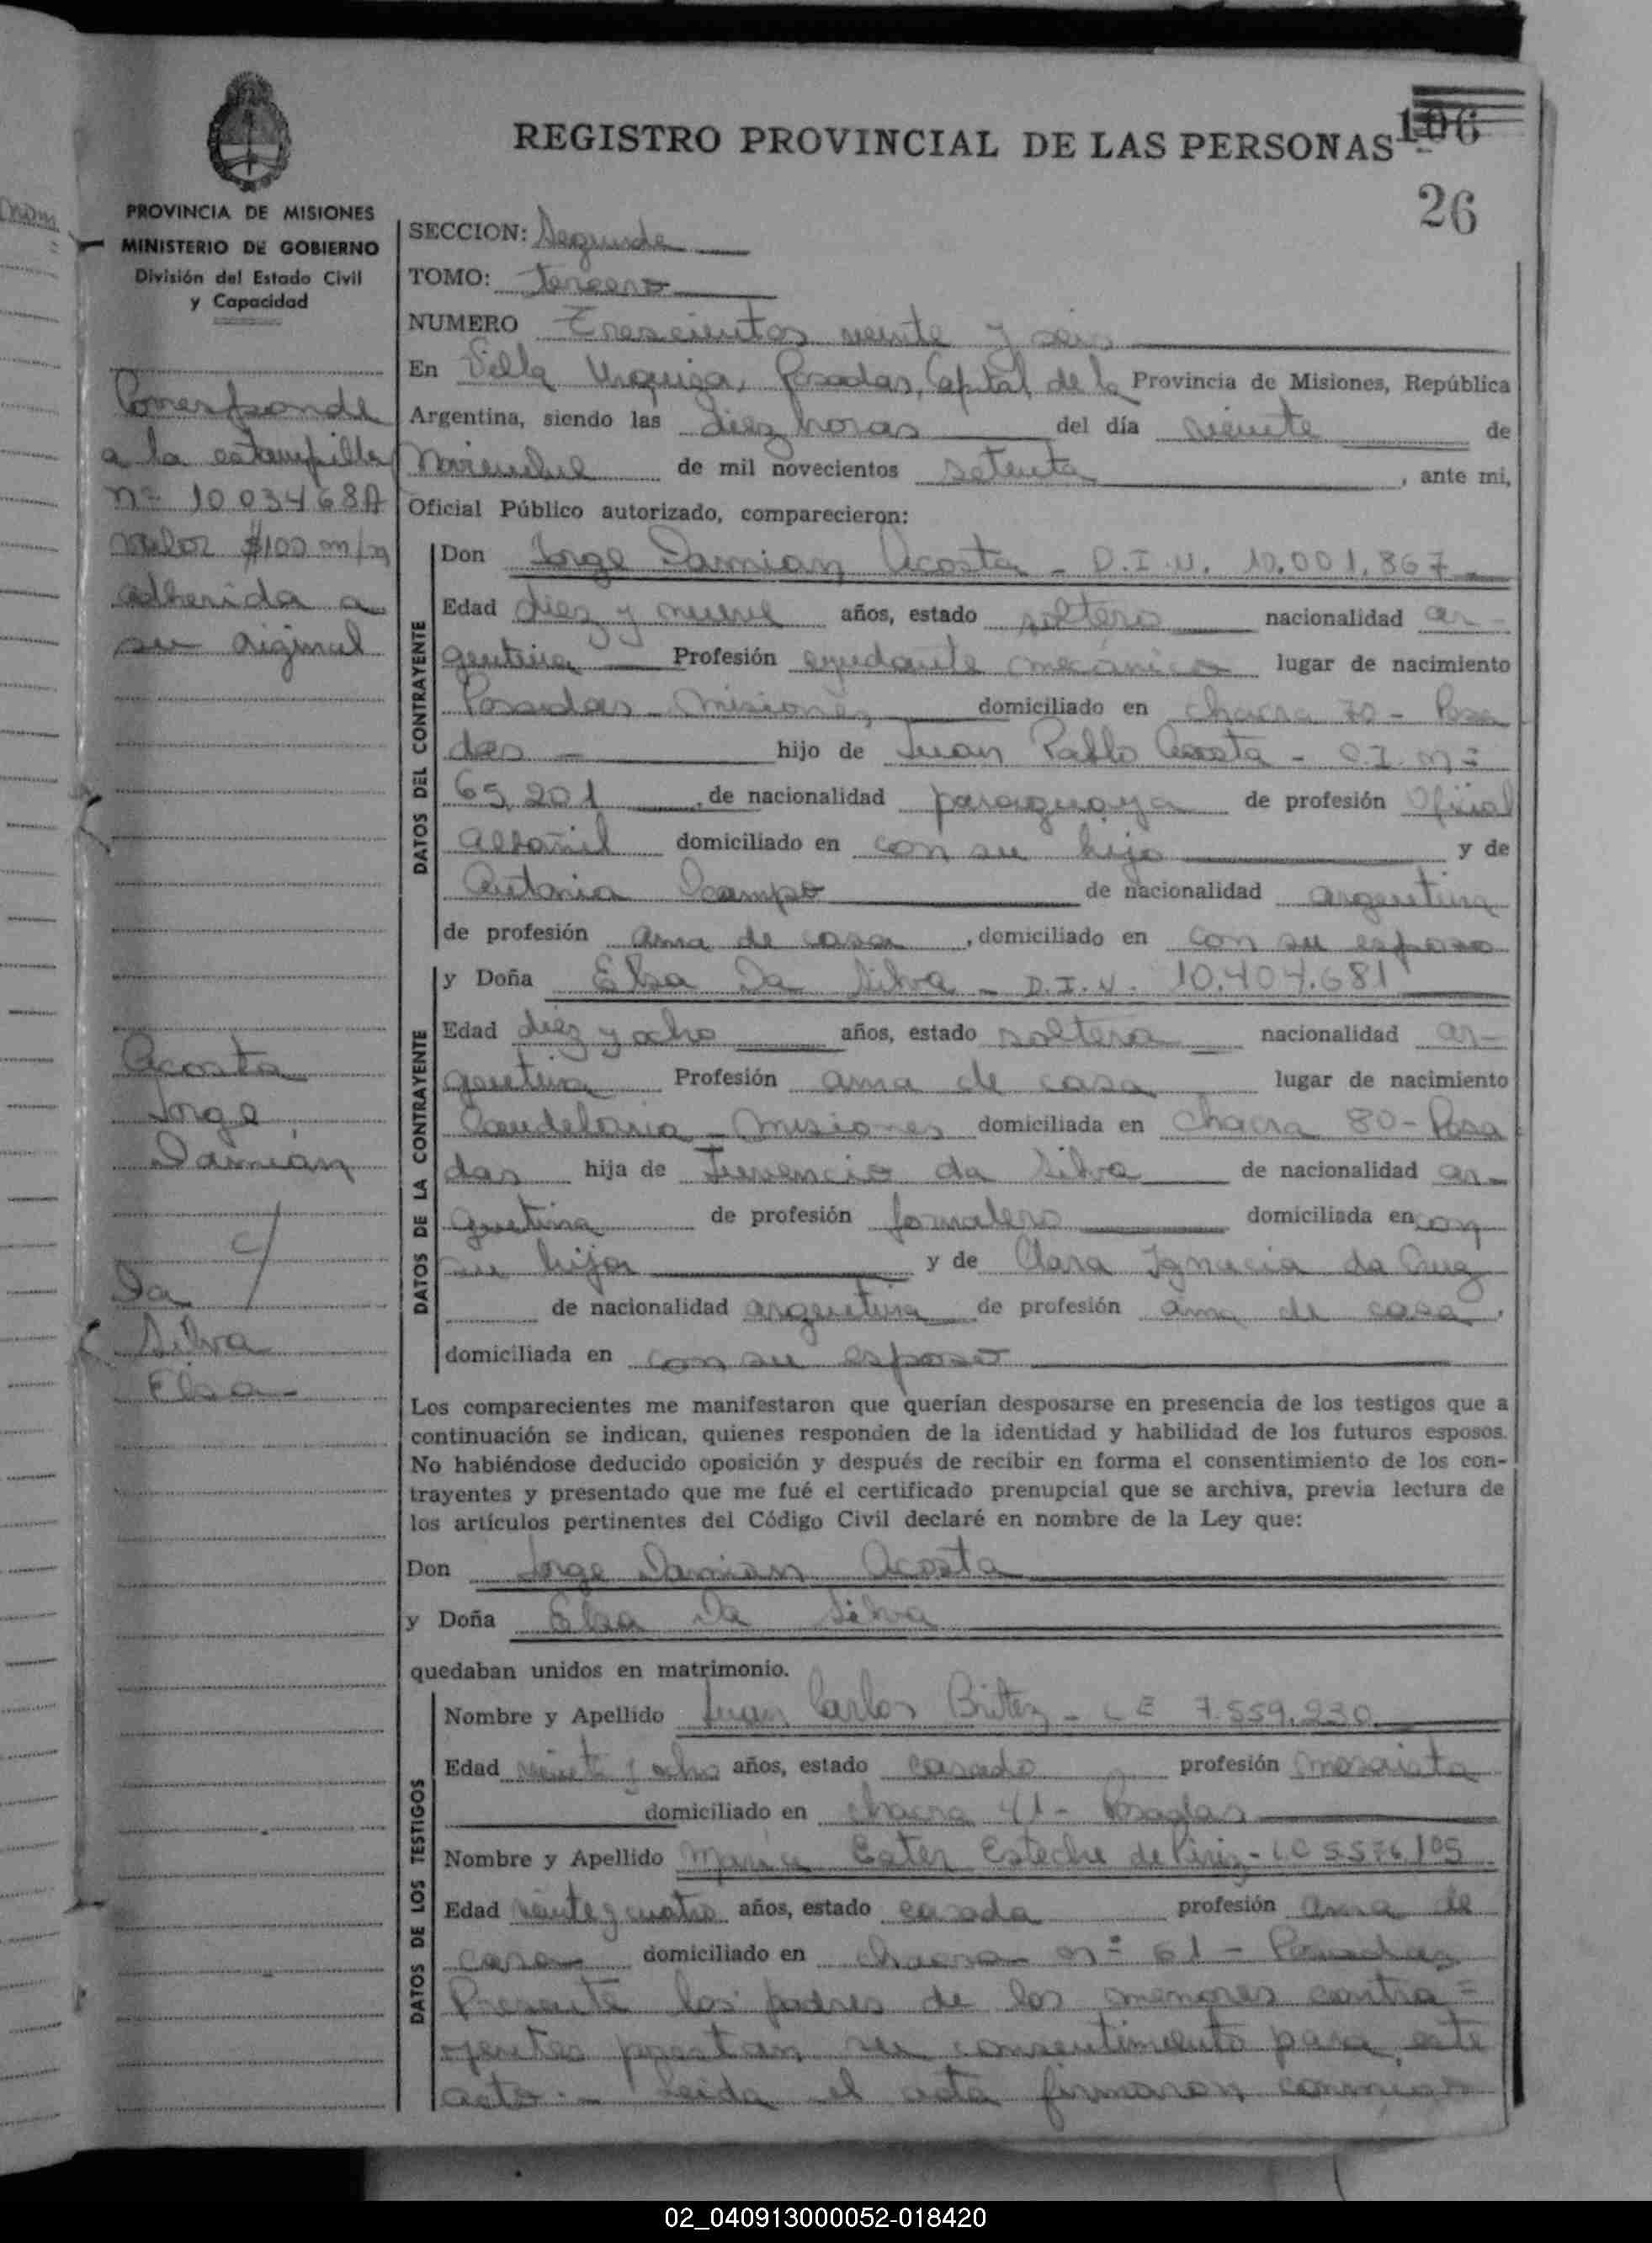 REGISTRO PROVINCIAL DE LAS PERSONAS
106
26
PROVINCIA DE MISIONES
MINISTERIO DE GOBIERNO
División del Estado Civil
y Capacidad
SECCION: Segunda
TOMO: tercero
NUMERO Trescientos veinte y seis
En Villa Urquiza, Posadas, Capital de la Provincia de Misiones, República
Argentina, siendo las diez horas del día de
Noviembre de mil novecientos setenta, ante mi,
Oficial Público autorizado, comparecieron:
Corresponde
a la estampilla
nº 1003468A
valor $100 m/n
adherida a
su original
Acosta
Jorge
Damián
c/
Da
Silva
Elsa
DATOS DEL CONTRAYENTE
Don Jorge Damian Acosta - D.I.N. 10.001.867
Edad diez y nueve años, estado soltero nacionalidad ar-
gentina Profesión ayudante mecánico lugar de nacimiento
Posadas - Misiones domiciliado en chacra 70 - Posa
das - hijo de Juan Pablo Acosta - C.I. nº
65.201, de nacionalidad paraguaya de profesión Oficial
albañil domiciliado en con su hijo y de
Antonia Ocampo de nacionalidad argentina
de profesión ama de casa, domiciliado en con su esposo
DATOS DE LA CONTRAYENTE
y Doña Elsa Da Silva - D.I.N. 10.404.681
Edad diez y ocho años, estado soltera nacionalidad ar-
gentina Profesión ama de casa lugar de nacimiento
Candelaria - Misiones domiciliada en Chacra 80 - Posa
das hija de da Silva de nacionalidad ar-
gentina de profesión jornalero domiciliada en con
su hija y de Clara Ignacia da Cruz
de nacionalidad argentina de profesión ama de casa,
domiciliada en con su esposo
Los comparecientes me manifestaron que querían desposarse en presencia de los testigos que a
continuación se indican, quienes responden de la identidad y habilidad de los futuros esposos.
No habiéndose deducido oposición y después de recibir en forma el consentimiento de los con-
trayentes y presentado que me fué el certificado prenupcial que se archiva, previa lectura de
los artículos pertinentes del Código Civil declaré en nombre de la Ley que:
Don Jorge Damian Acosta
y Doña Elsa Da Silva
quedaban unidos en matrimonio.
DATOS DE LOS TESTIGOS
Nombre y Apellido Juan Carlos Britez - LE 7.559.230
Edad veinte y ocho años, estado casado profesión mosaista
domiciliado en chacra 41 - Posadas
Nombre y Apellido María Ester Esteche de Piriz - LC 5576105
Edad veinte y cuatro años, estado casada profesión ama de
casa domiciliado en chacra nº 61 - Posadas
Presente los padres de los menores contra=
yentes prestan su consentimiento para este
acto.- Leida el acta firmaron conmigo
02_040913000052-018420